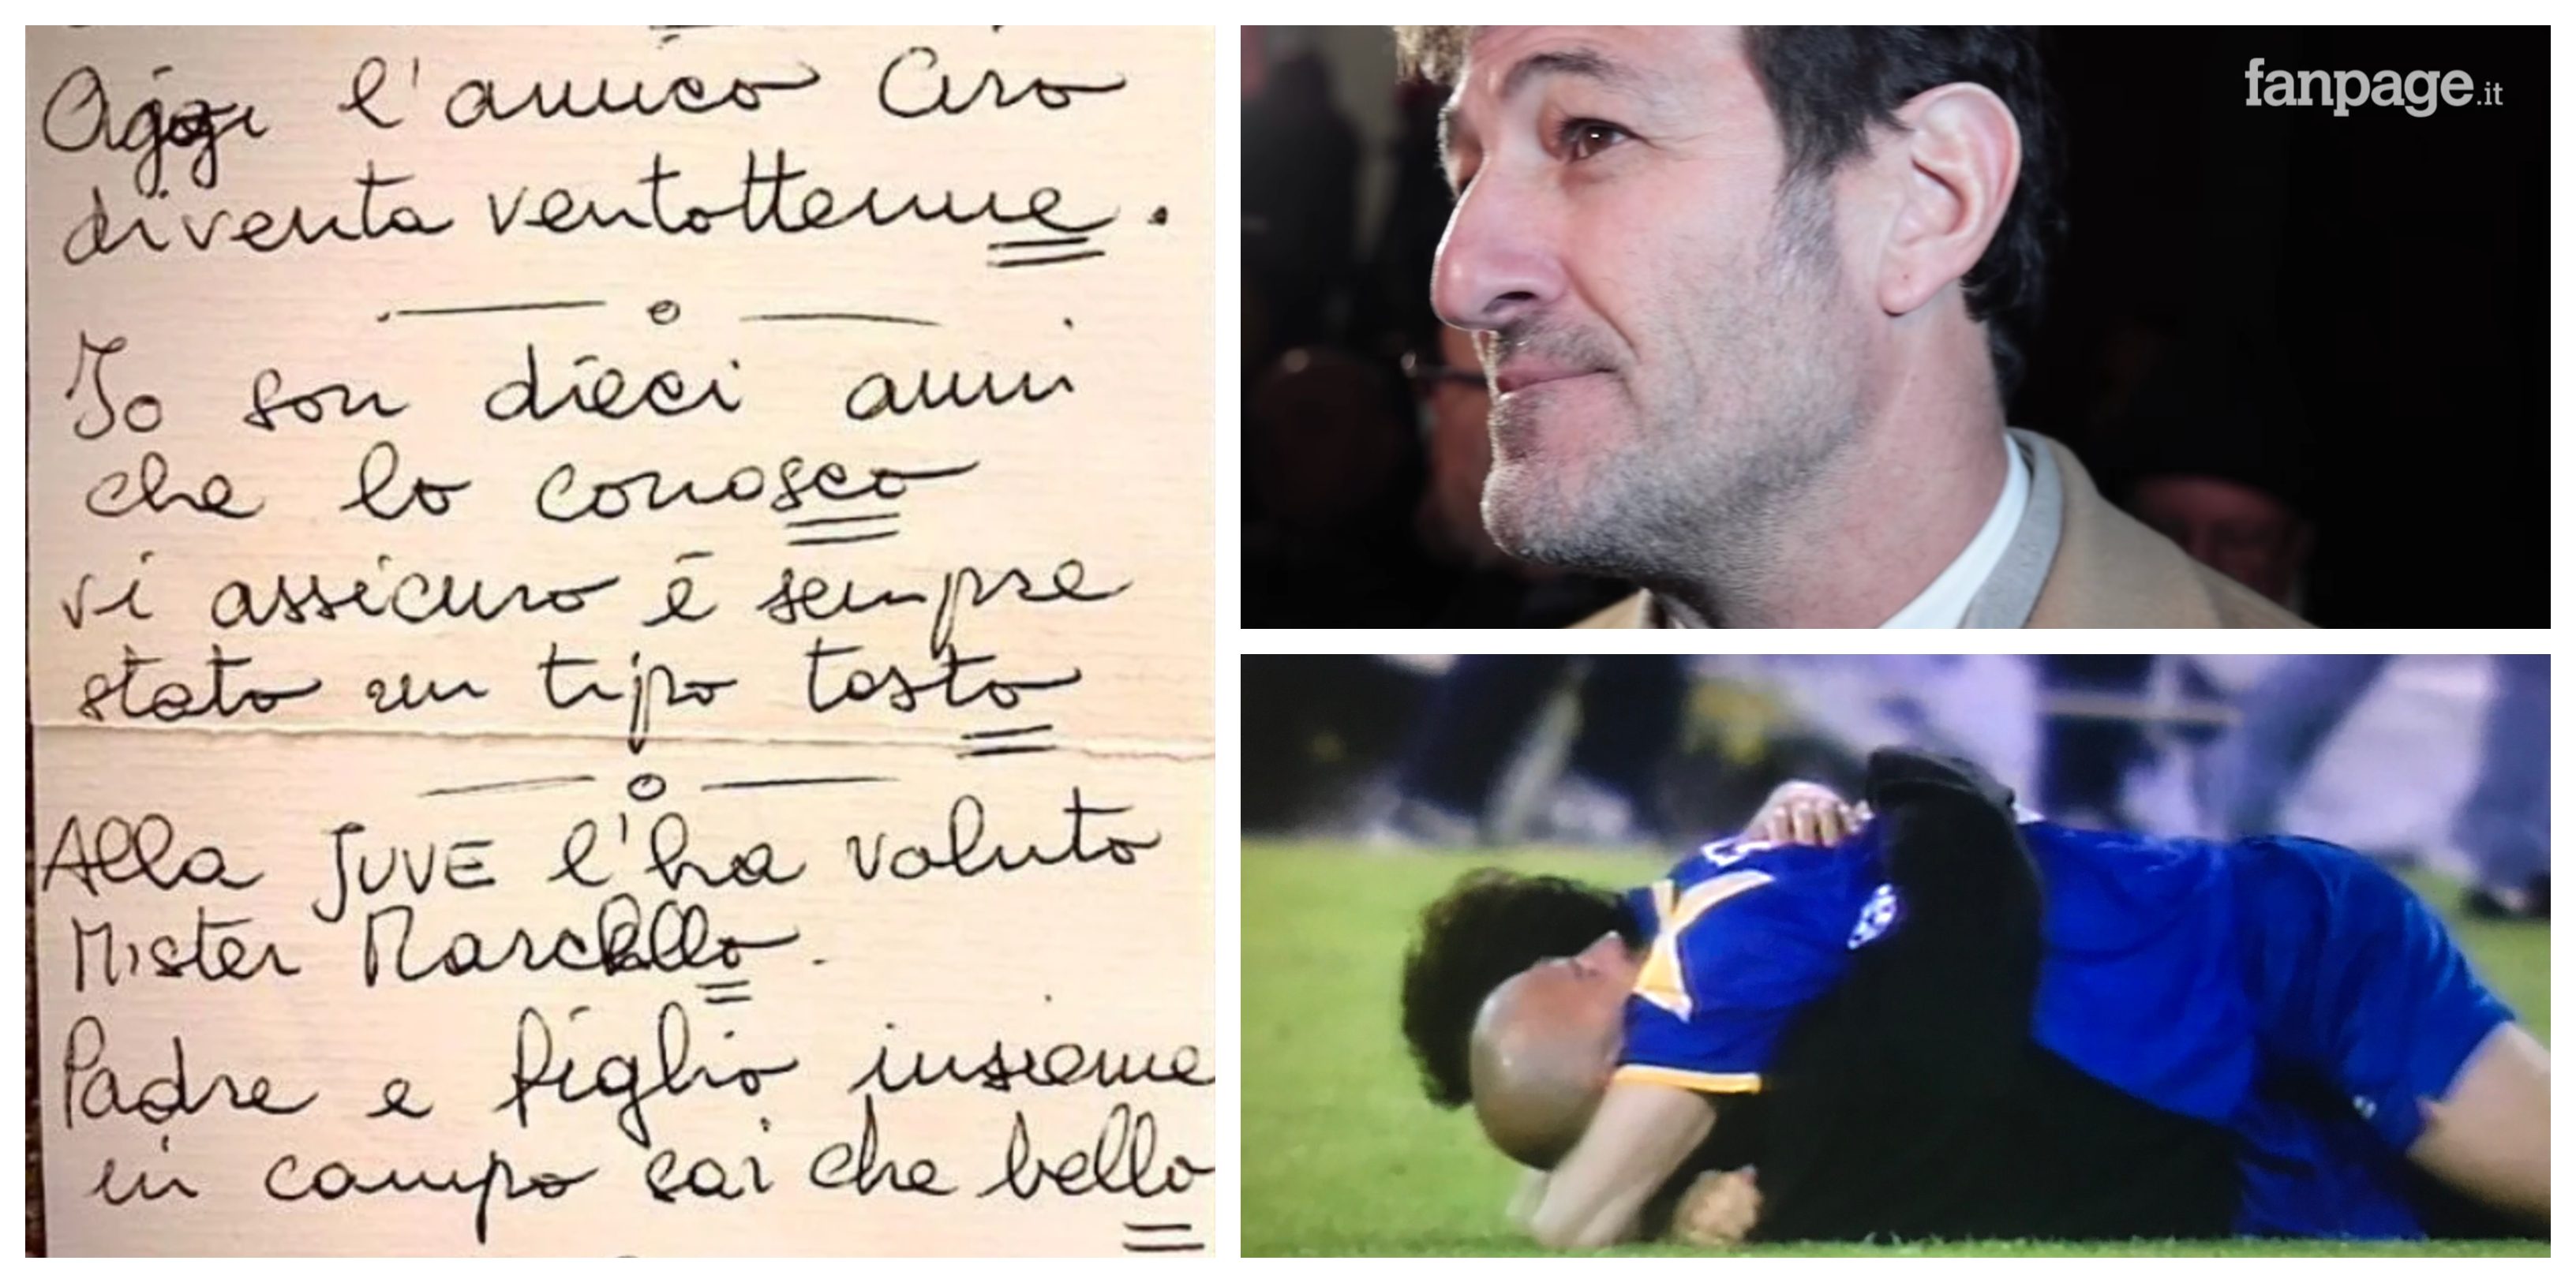 Oggi l'amico Ciro
diventa ventottenne.
Io son dieci anni
che lo conosco
vi assicuro è sempre
stato un tipo tosto
Alla JUVE l'ha voluto
Mister Marcello.
Padre e figlio insieme
in campo sai che bello
fanpage.it